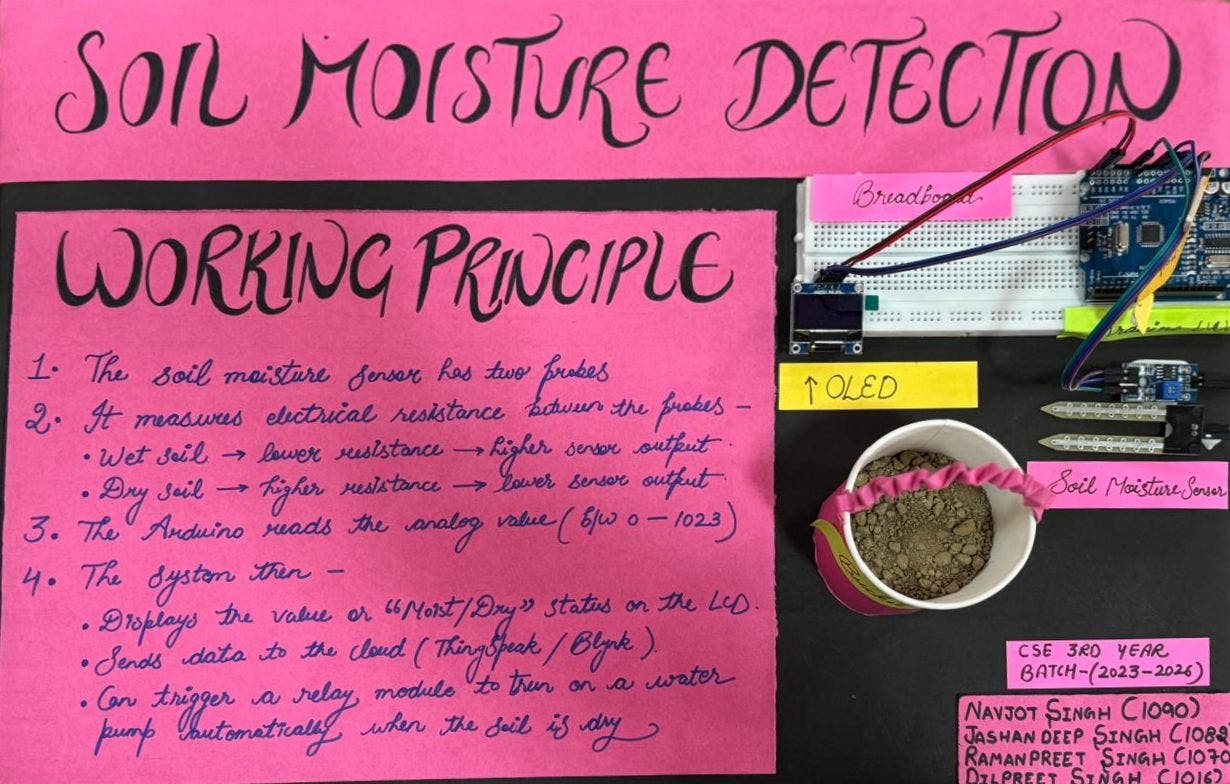 SOIL MOISTURE DETECTION
WORKING PRINCIPLE
1. The soil moisture sensor has two probes
2. It measures electrical resistance between the probes -
• Wet soil → lower resistance → higher sensor output.
• Dry soil → higher resistance → lower sensor output.
3. The Arduino reads the analog value (b/w 0 - 1023)
4. The System then -
• Displays the value or "Moist/Dry" status on the LCD.
• Sends data to the cloud (ThingSpeak / Blynk).
• Can trigger a relay module to trun on a water
pump automatically when the soil is dry
Breadboard
↑ OLED
Soil Moisture Sensor
CSE 3RD YEAR
BATCH-(2023-2026)
NAVJOT SINGH (1090)
JASHANDEEP SINGH (1088
RAMANPREET SINGH (1070
DILPREET SINGH (1016